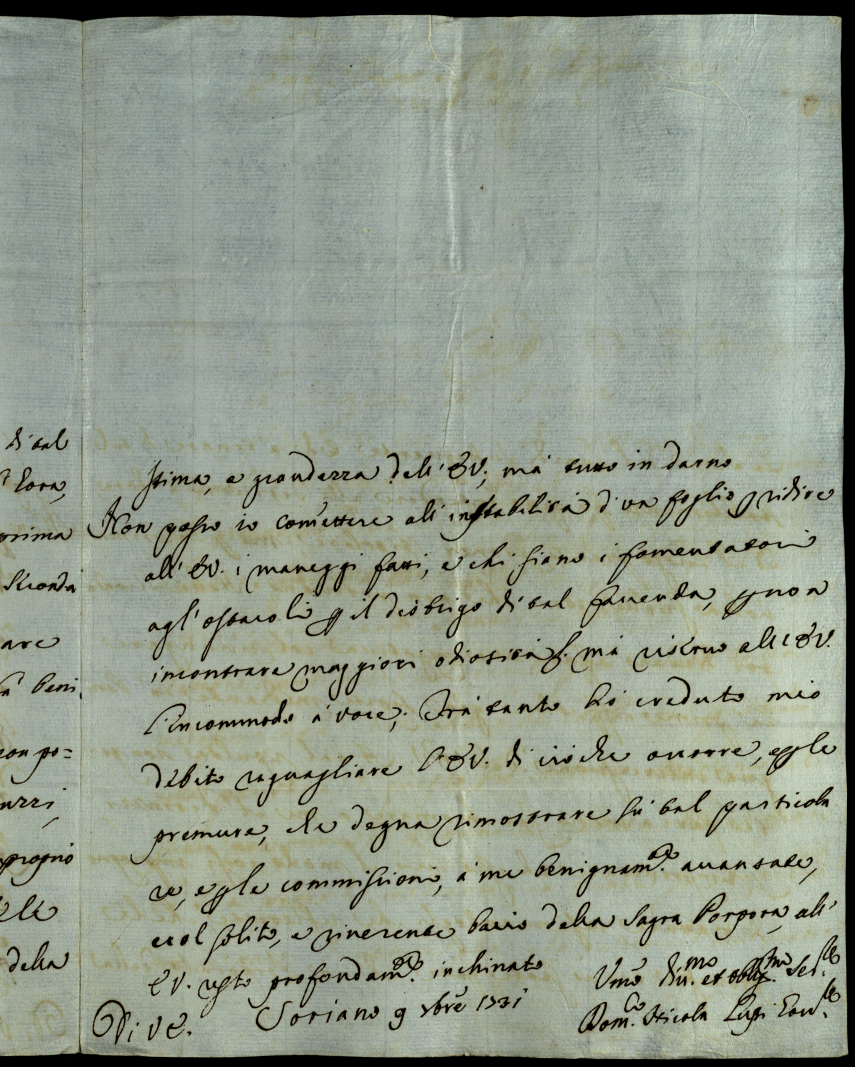 di tal
prima
seconda
are
beni
non po=
proprio
della
stima, e grandezza dell' EV; mà tutto in darno
Non posso io comettere all' instabilità d'un foglio p ridire
all' EV. i maneggi fatti, e chi siano i fomentatori
agl' ostacoli p il disbrigo di tal facenda, p non
incontrare maggiori odiosità mà riservo all' EV.
l'incommodo à voce; Frà tanto hò creduto mio
debito raguagliare l'EV. di ciò che occorre, e p le
premure, che degna rimostrare sù tal particola
re, e p le commissioni, à me benignam.te avanzate,
e col solito, e riverente bacio della Sagra Porpora, all'
EV. resto profondam.te inchinato
Di V E. Soriano 9 xbre 1731
Umo Divmo et obblig.mo Ser.re
Dom.co Nicola